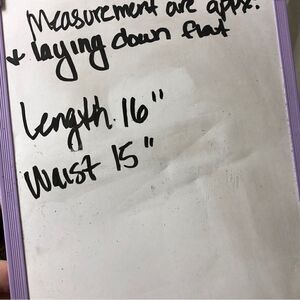 Measurement are appx.
+ laying down flat
Length. 16"
Waist 15"